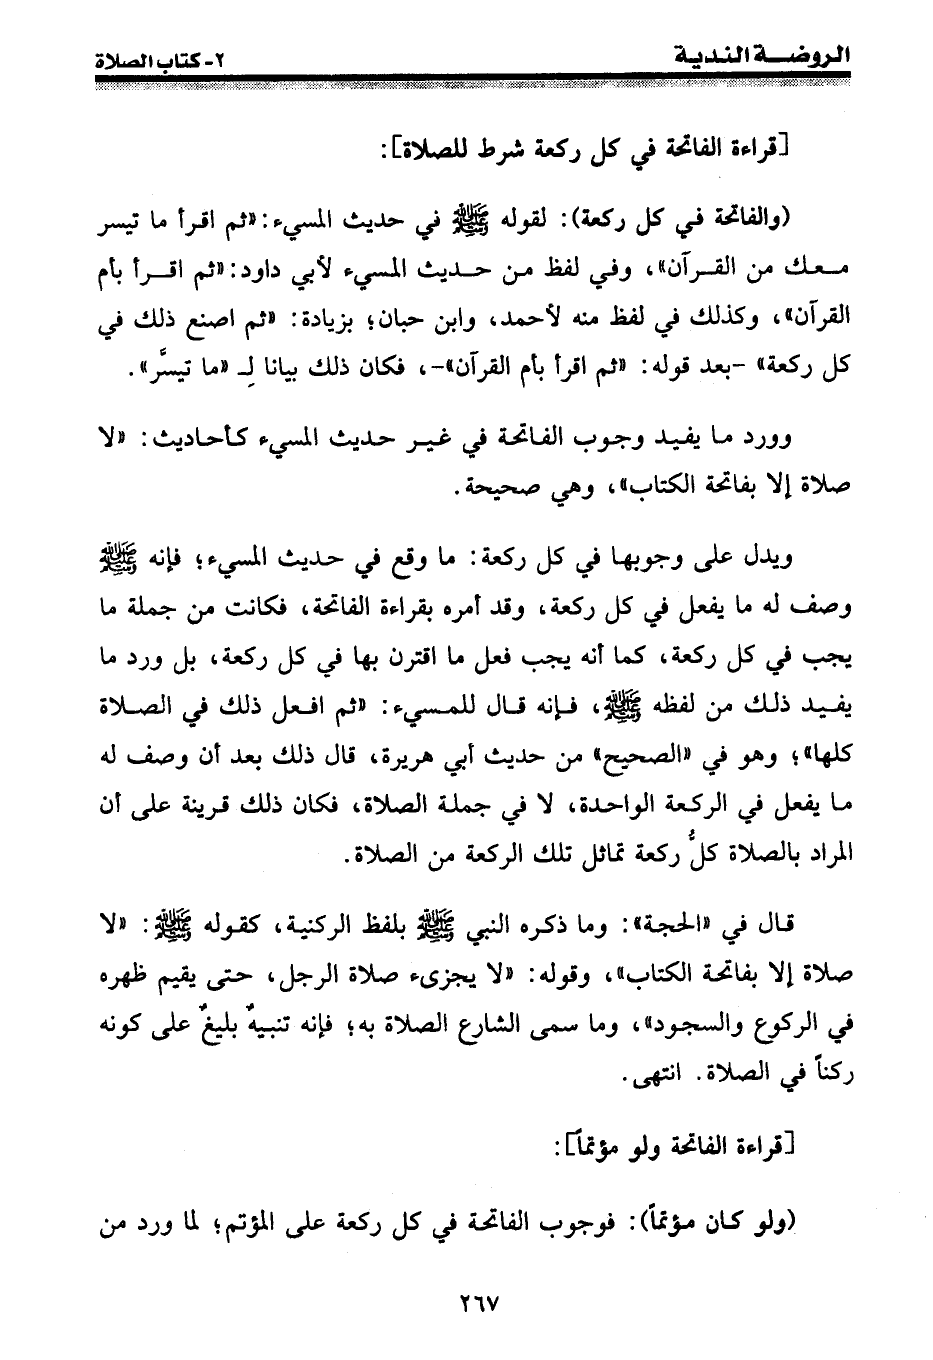 الروضة الندية
٢- كتاب الصلاة
[قراءة الفاتحة في كل ركعة شرط للصلاة]:
(والفاتحة في كل ركعة): لقوله ﷺ في حديث المسيء: «ثم اقرأ ما تيسر
معك من القرآن»، وفي لفظ من حديث المسيء لأبي داود: «ثم اقرأ بأم
القرآن»، وكذلك في لفظ منه لأحمد، وابن حبان؛ بزيادة: «ثم اصنع ذلك في
كل ركعة» -بعد قوله: «ثم اقرأ بأم القرآن»-، فكان ذلك بيانا لِـ «ما تيسَّر».
وورد ما يفيد وجوب الفاتحة في غير حديث المسيء كأحاديث: «لا
صلاة إلا بفاتحة الكتاب»، وهي صحيحة.
ويدل على وجوبها في كل ركعة: ما وقع في حديث المسيء؛ فإنه ﷺ
وصف له ما يفعل في كل ركعة، وقد أمره بقراءة الفاتحة، فكانت من جملة ما
يجب في كل ركعة، كما أنه يجب فعل ما اقترن بها في كل ركعة، بل ورد ما
يفيد ذلك من لفظه ﷺ، فإنه قال للمسيء: «ثم افعل ذلك في الصلاة
كلها»؛ وهو في «الصحيح» من حديث أبي هريرة، قال ذلك بعد أن وصف له
ما يفعل في الركعة الواحدة، لا في جملة الصلاة، فكان ذلك قرينة على أن
المراد بالصلاة كلُّ ركعة تماثل تلك الركعة من الصلاة.
قال في «الحجة»: وما ذكره النبي ﷺ بلفظ الركنية، كقوله ﷺ: «لا
صلاة إلا بفاتحة الكتاب»، وقوله: «لا يجزىء صلاة الرجل، حتى يقيم ظهره
في الركوع والسجود»، وما سمى الشارع الصلاة به؛ فإنه تنبيهٌ بليغٌ على كونه
ركناً في الصلاة. انتهى.
[قراءة الفاتحة ولو مؤتماً]:
(ولو كان مؤتماً): فوجوب الفاتحة في كل ركعة على المؤتم؛ لما ورد من
٢٦٧